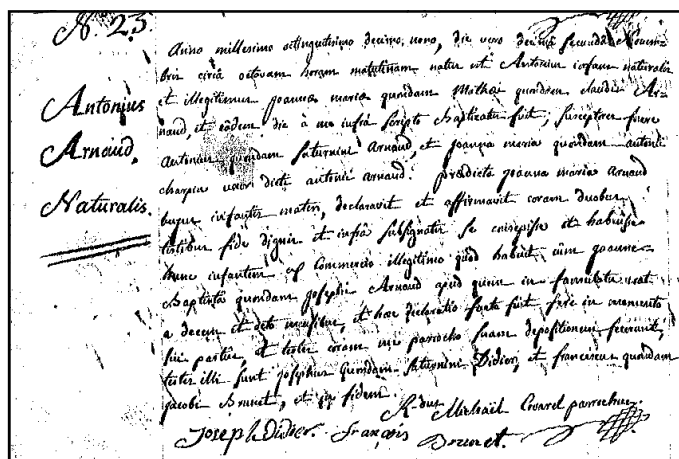 N. 23.
Antonius
Arnaud.
Naturalis.
Anno millesimo octingentesimo decimo nono, die vero decima secunda Novem-
bris circa octavam horam matutinam natus est Antonius infans naturalis
et illegitimus joannæ mariæ quondam Mathæi quondam claudii Ar-
naud, et eâdem die à me infrà scripto Baptizatus fuit, susceptores fuere
Antonius quondam saturnini Arnaud, et joanna maria quondam antonii
charpin uxor dicti antonii arnaud. prædicta joanna maria Arnaud
hujus infantis mater, declaravit et affirmavit coram duobus
testibus fide dignis et infrà subsignatis se concepisse et habuisse
hunc infantem ex Commercio illegitimo quod habuit cum joanne
Baptista quondam josephi Arnaud apud quem in famulatu erat
a decem et octo mensibus, et hæc declaratio facta fuit ferè in momento
sui partûs, et testes coram me parrocho suam depositionem fecerunt,
testes illi sunt josephus quondam saturnini Didier, et franciscus quondam
jacobi Brunet, et in fidem.
R.dus Michaël parrochus.
Joseph Didier. François Brunet.